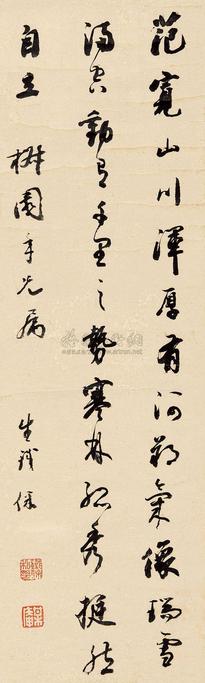 范寬山川渾厚有河朔氣像瑞雪
滿山動有千里之勢寒林孤秀挺然
自立
樹園年兄屬
生鐵保